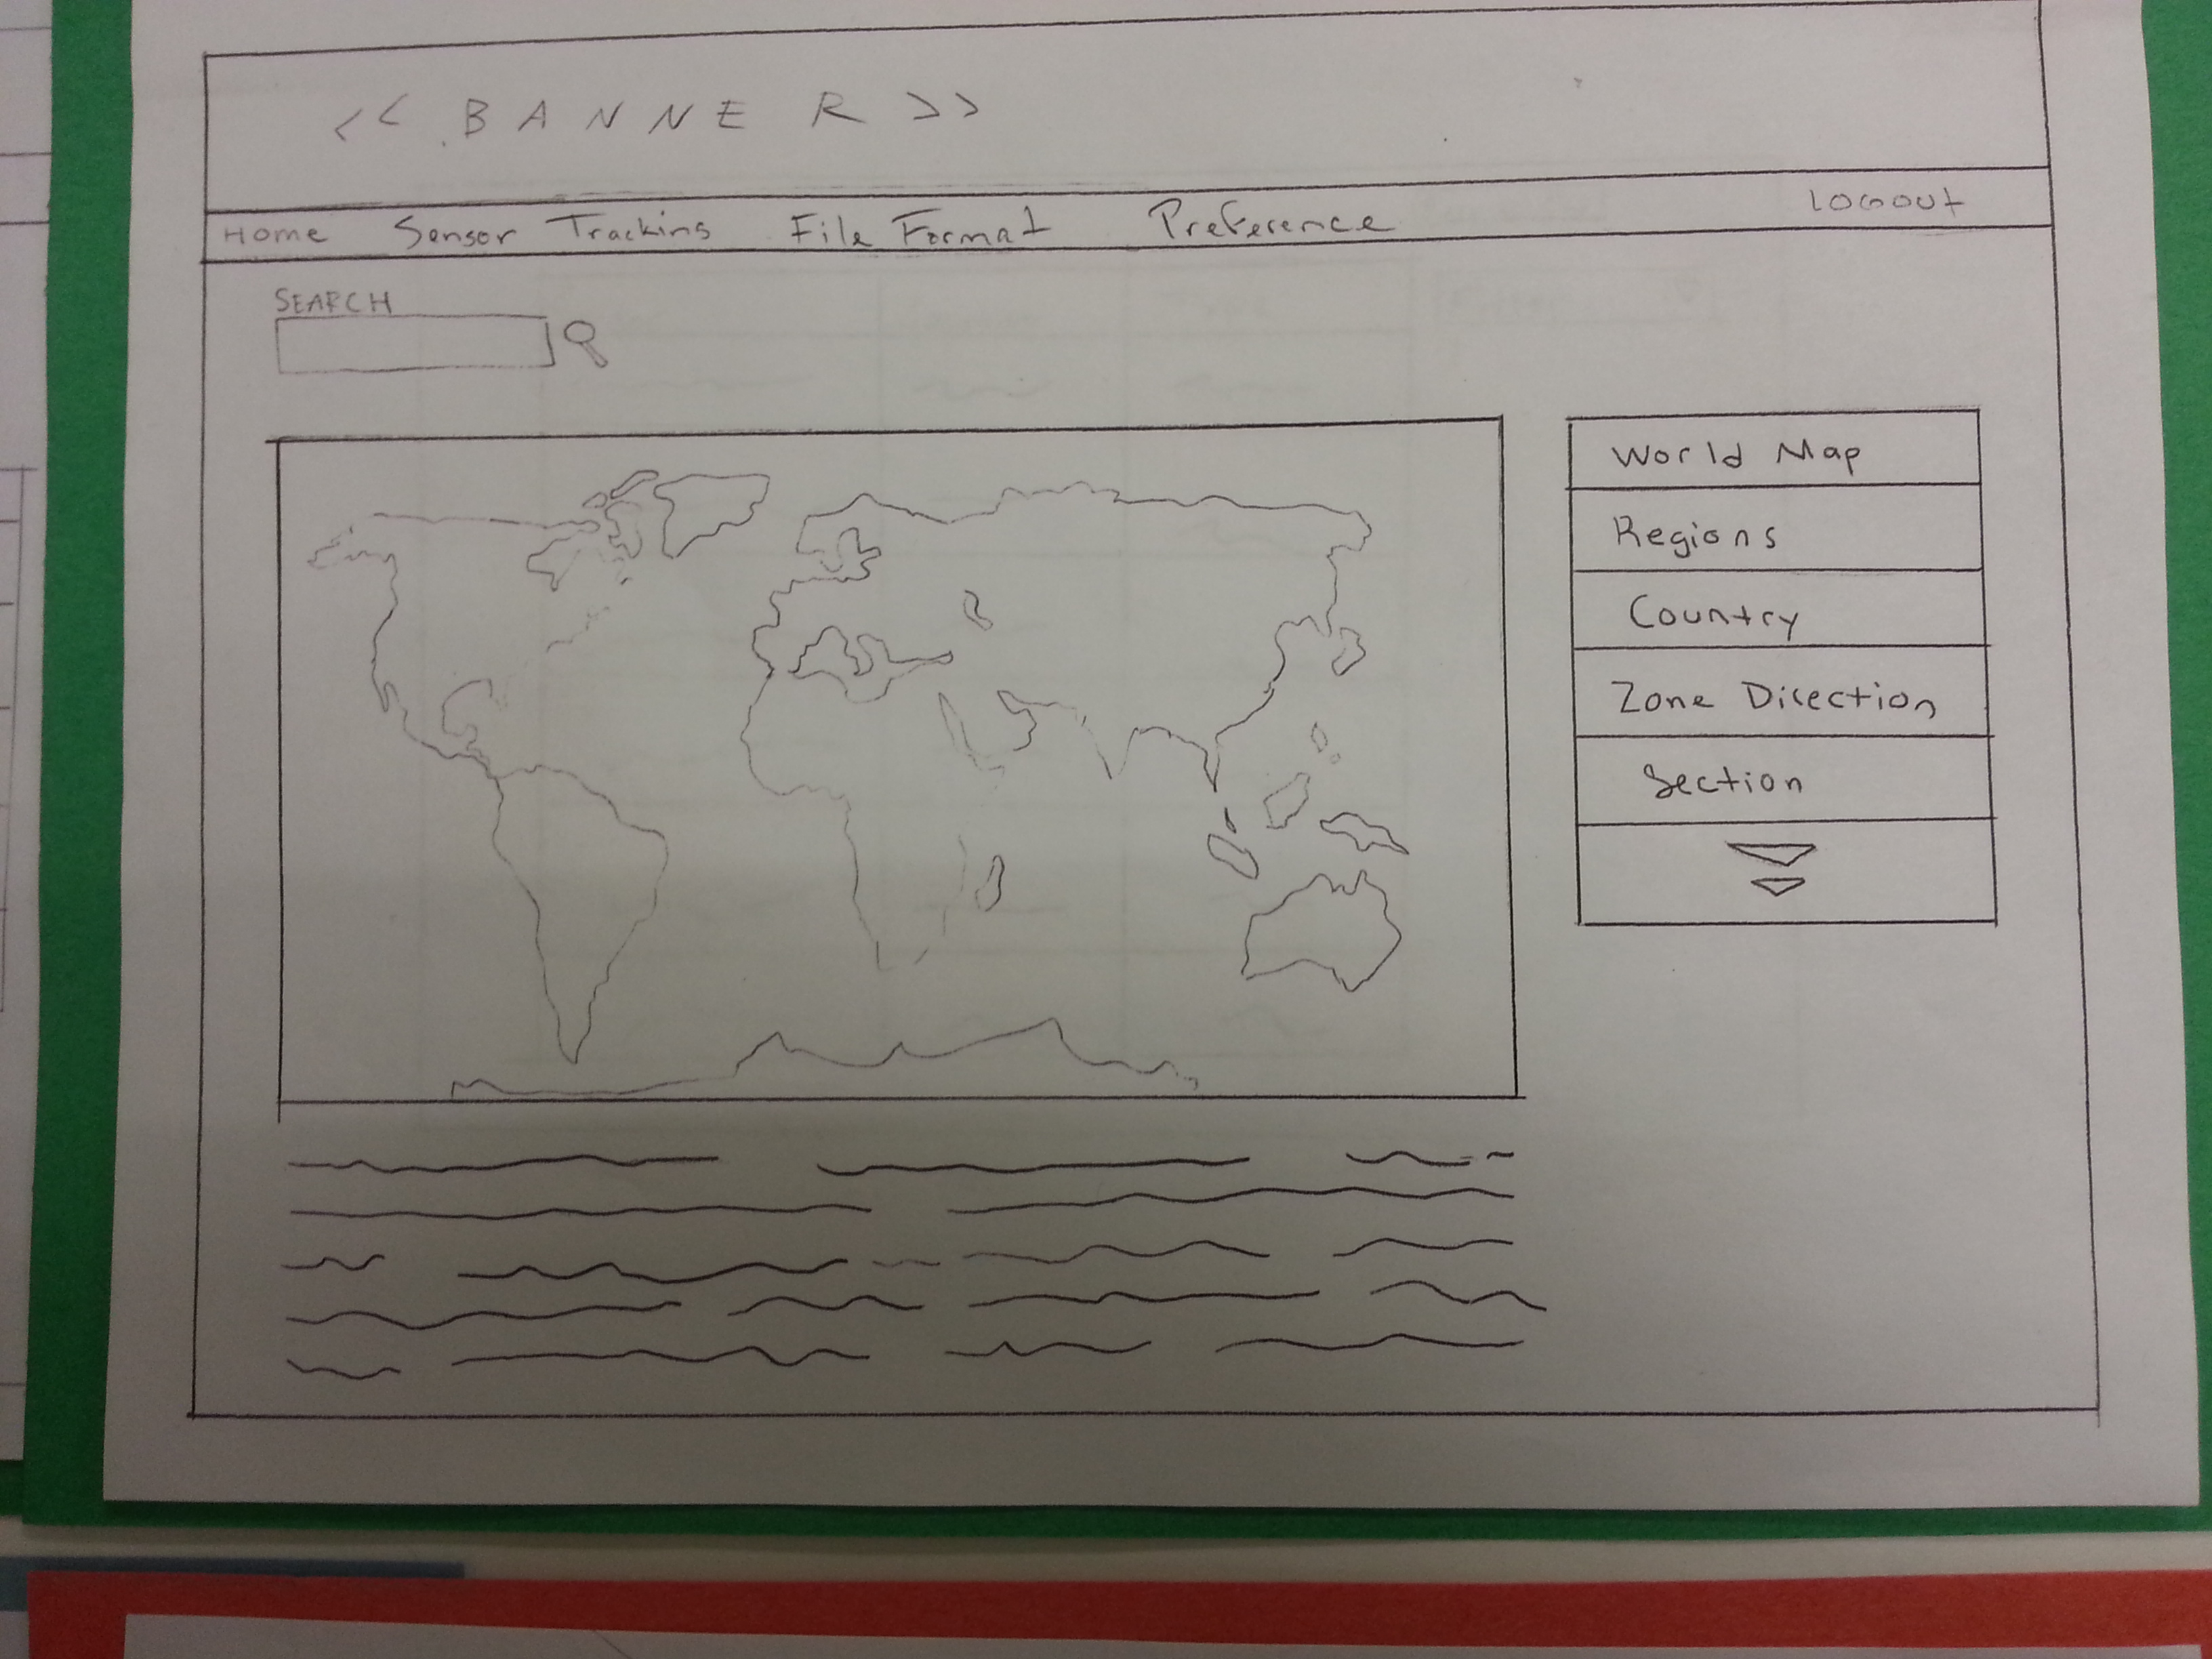 << BANNER >>
Home Sensor Tracking File Format Preference LOGOUT
SEARCH
World Map
Regions
Country
Zone Direction
Section